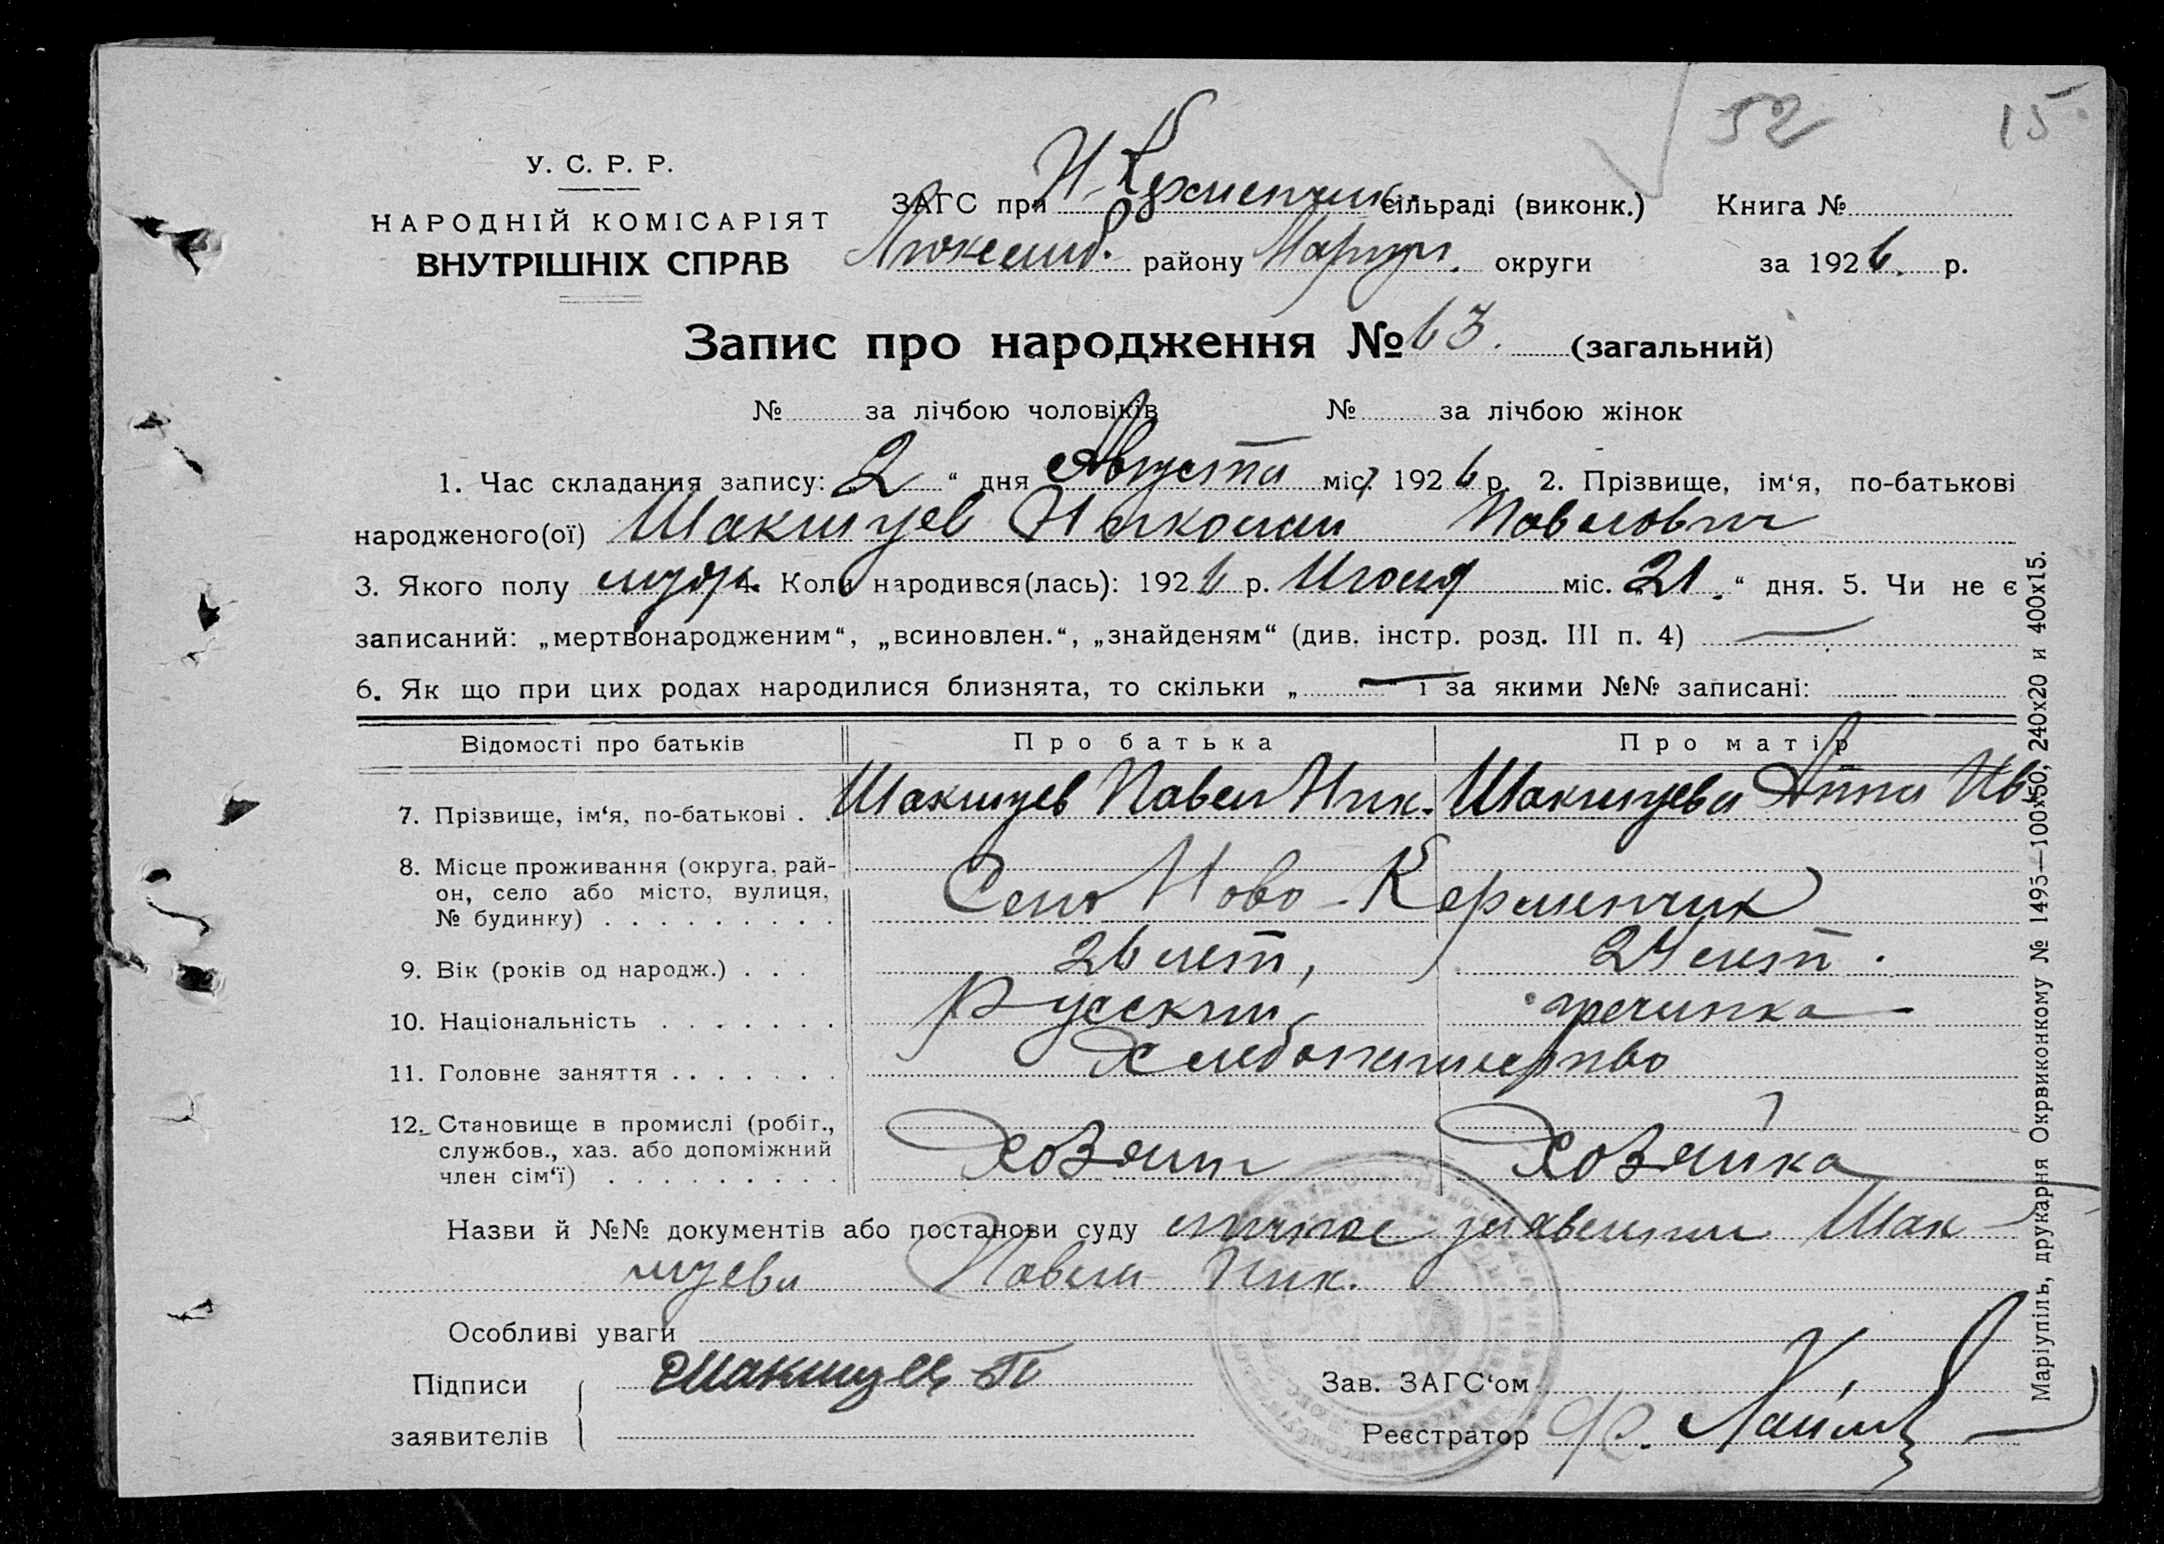 52 15
У. С. Р. Р.
НАРОДНІЙ КОМІСАРІЯТ
ВНУТРІШНІХ СПРАВ
ЗАГС при Н-Керменчик. сільраді (виконк.) Книга №
району Мариуп. округи за 1926. р.
Запис про народження № 63. (загальний)
№ за лічбою чоловіків № за лічбою жінок
1. Час складання запису: „2“ дня Августа міс. 1926 р. 2. Прізвище, ім‘я, по-батькові
народженого(ої) Шакшуев Николай Павлович
3. Якого полу муж. 4. Коли народився(лась): 1926 р. Июля міс. „21.“ дня. 5. Чи не є
записаний: „мертвонародженим“, „всиновлен.“, „знайденям“ (див. інстр. розд. III п. 4) —
6. Як що при цих родах народилися близнята, то скільки „—“ і за якими №№ записані:
Відомості про батьків Про батька Про матір
7. Прізвище, ім‘я, по-батькові . . Шакшуев Павел Ник. Шакшуева Анна Ив.
8. Місце проживання (округа, рай-
он, село або місто, вулиця,
№ будинку) . . . . . . . . . Село Ново-Керменчик
9. Вік (років од народж.) . . . 26 лет, 24 лет.
10. Національність . . . . . . . Русский гречинка
11. Головне заняття . . . . . . . Хлебопашество
12. Становище в промислі (робіт.,
службов., хаз. або допоміжний
член сім‘ї) . . . . . . . . . Хозяин Хозяйка
Назви й №№ документів або постанови суду личное заявление Шак-
шуева Павла Ник.
Особливі уваги
Підписи
заявителів
Шакшуев П
Зав. ЗАГС‘ом
Реєстратор
Маріупіль, друкарня Окрвиконкому № 1495—100х50, 240х20 и 400х15.